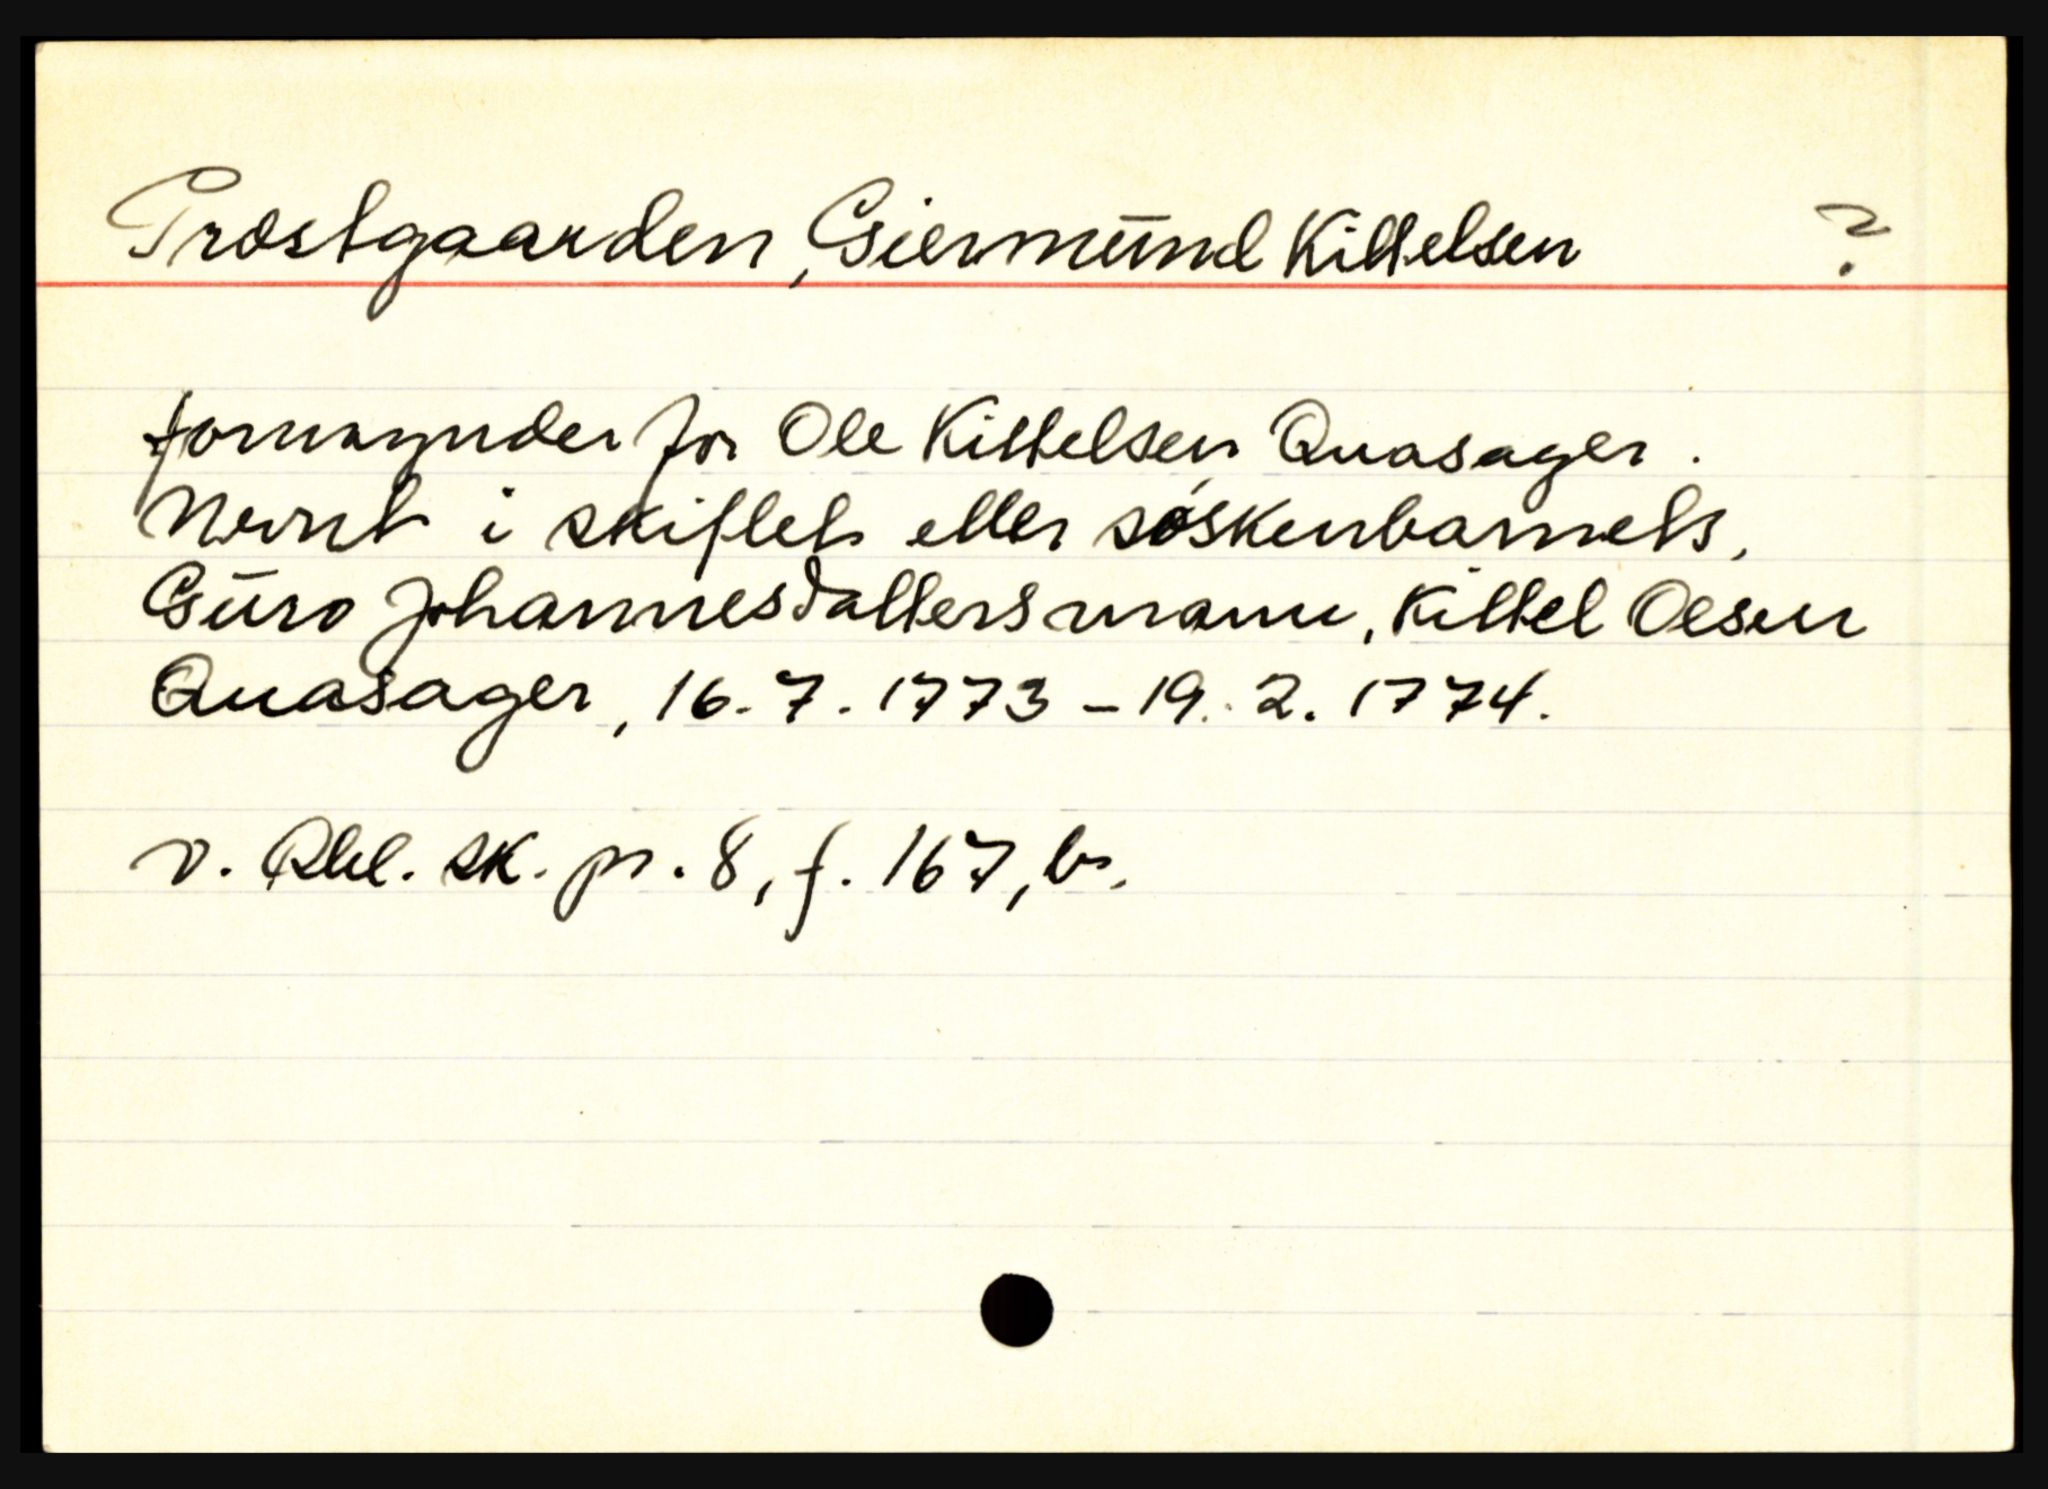 Prostgaarden, Giermund Kittelsen ?
formynder for Ole Kittelsen Quasager.
Nevnt i skiftet etter søskenbarnets,
Guro Johannesdatters mann, Kittel Olsen
Quasager, 16.7.1773 - 19.2.1774.
v. Rbl. sk. pr. 8, f. 167, b.